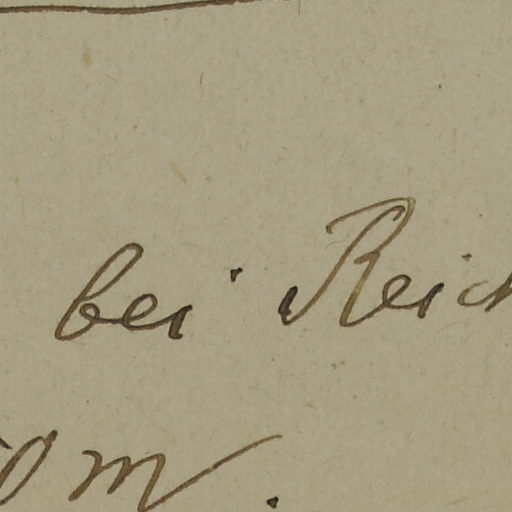 bei Reich
0 m.